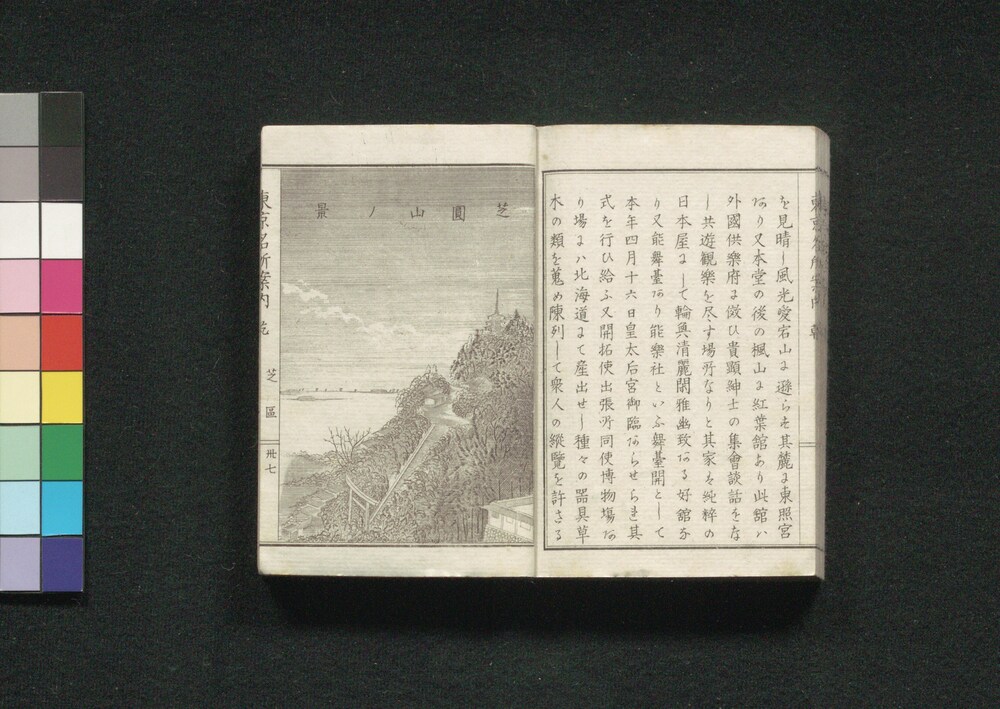 を見晴し風光愛宕山に遜らず其麓に東照宮
あり又本堂の後の楓山に紅葉館あり此舘ハ
外國倶樂府に傚ひ貴顕紳士の集會談話をな
し共遊観樂を尽す場所なりと其家ハ純粋の
日本屋にして輪奐清麗閑雅幽致なる好舘な
り又能舞臺あり能樂社といふ舞臺開として
本年四月十六日皇太后宮御臨あらせられ其
式を行ひ給ふ又開拓使出張所同使博物場あ
り場にハ北海道にて産出せし種々の器具草
木の類を蒐め陳列して衆人の縦覧を許さる
芝圓山ノ景
東京名所案内
芝區
卅七